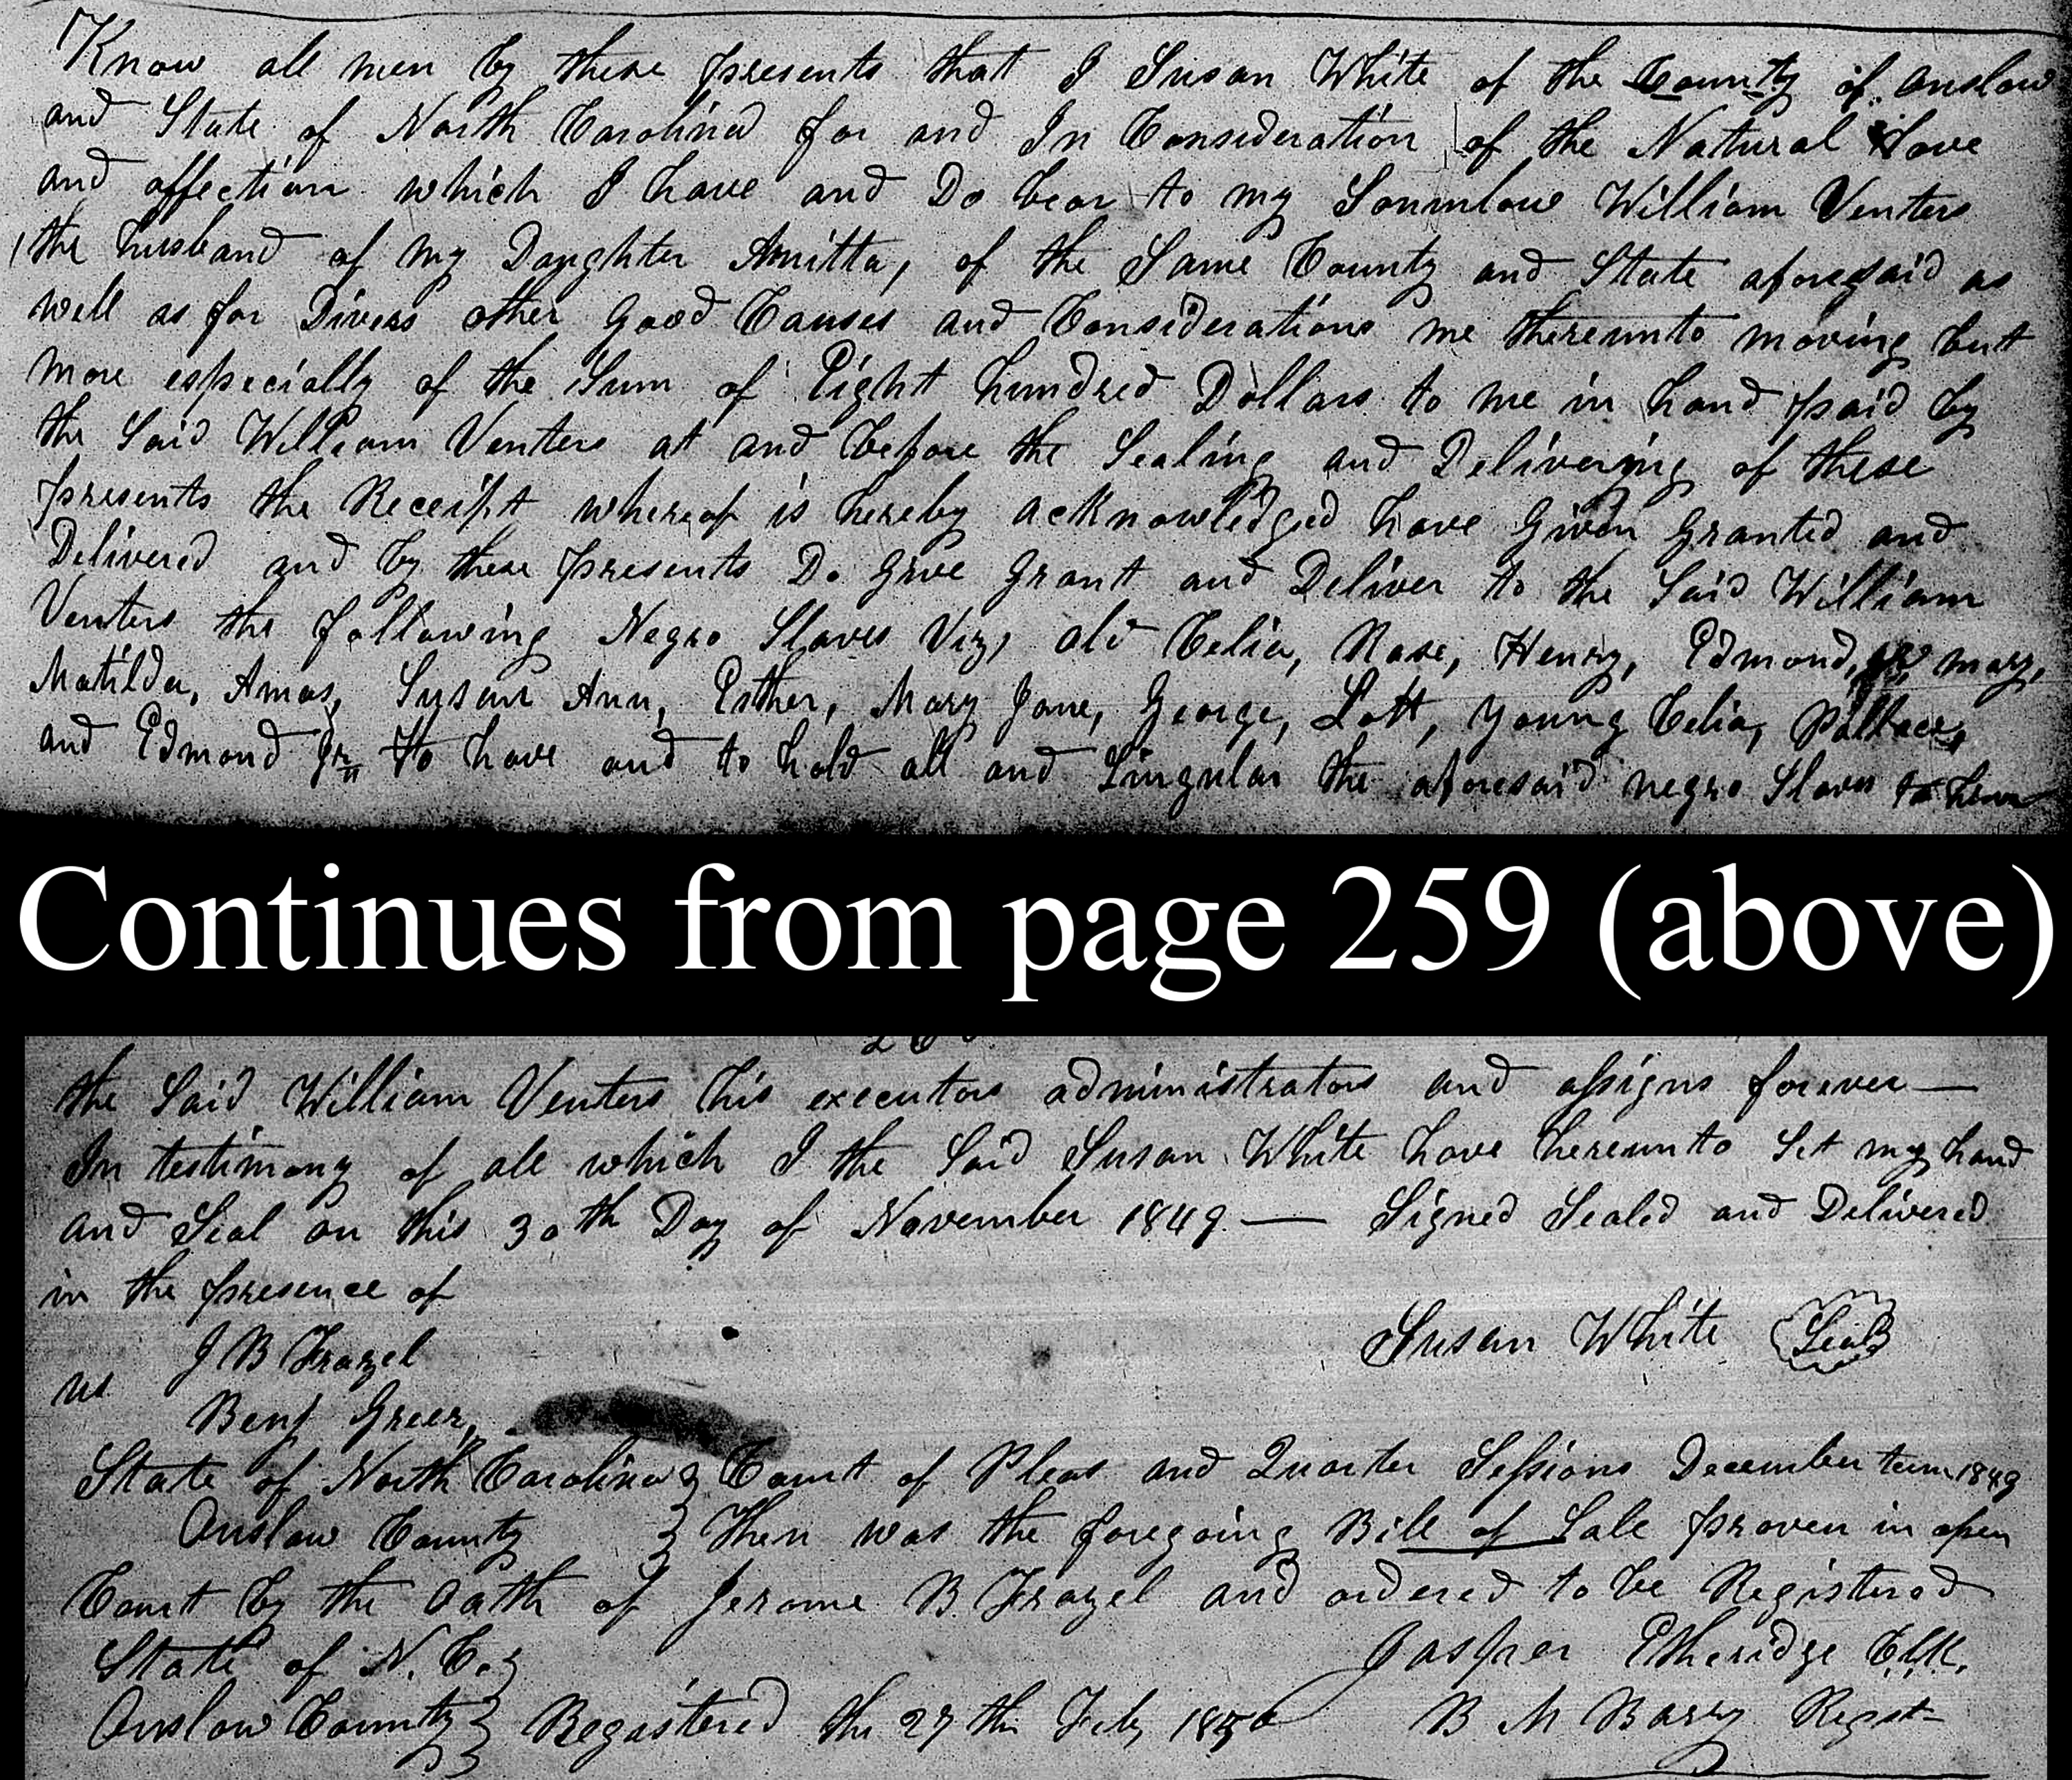 Know all men by these presents that I Susan White of the County of Onslow
and State of North Carolina for and In Consideration of the Natural Love
and affection which I have and Do bear to my Soninlaw William Venters
the husband of my Daughter Amitta, of the Same County and State aforesaid as
well as for Divers other Good Causes and Considerations me thereunto moving but
more especially of the Sum of Eight hundred Dollars to me in hand paid by
the Said William Venters at and before the Sealing and Delivering of these
presents the Receipt whereof is hereby acknowledged have Given Granted and
Delivered and by these presents Do Give Grant and Deliver to the Said William
Venters the following Negro Slaves Viz, old Celia, Rose, Henry, Edmond, mary,
Matilda, Amos, Susan Ann, Esther, Mary Jane, George, Lott, Young Celia,
and Edmond Jr to have and to hold all and Singular the aforesaid negro Slaves to him
Continues from page 259 (above)
the Said William Venters his executors administrators and assigns forever —
In testimony of all which I the Said Susan White have hereunto Set my hand
and Seal on this 30th Day of November 1849 — Signed Sealed and Delivered
in the presence of
Susan White Seal
J B Frazel
Benj Greer,
State of North Carolina Court of Pleas and Quarter Sessions December term 1849
Onslow County Then was the foregoing Bill of Sale proven in open
Court by the Oath of Jerome B. Frazel and ordered to be Registered
State of N. C. Jasper Etheridge Clk.
Onslow County Registered the 27th Feb, 1850 B M Barry Regist